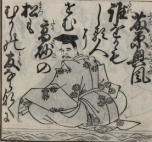 藤原興風
誰をかも
しる人に
せむ
高砂の
松も
むかしの友ならなくに